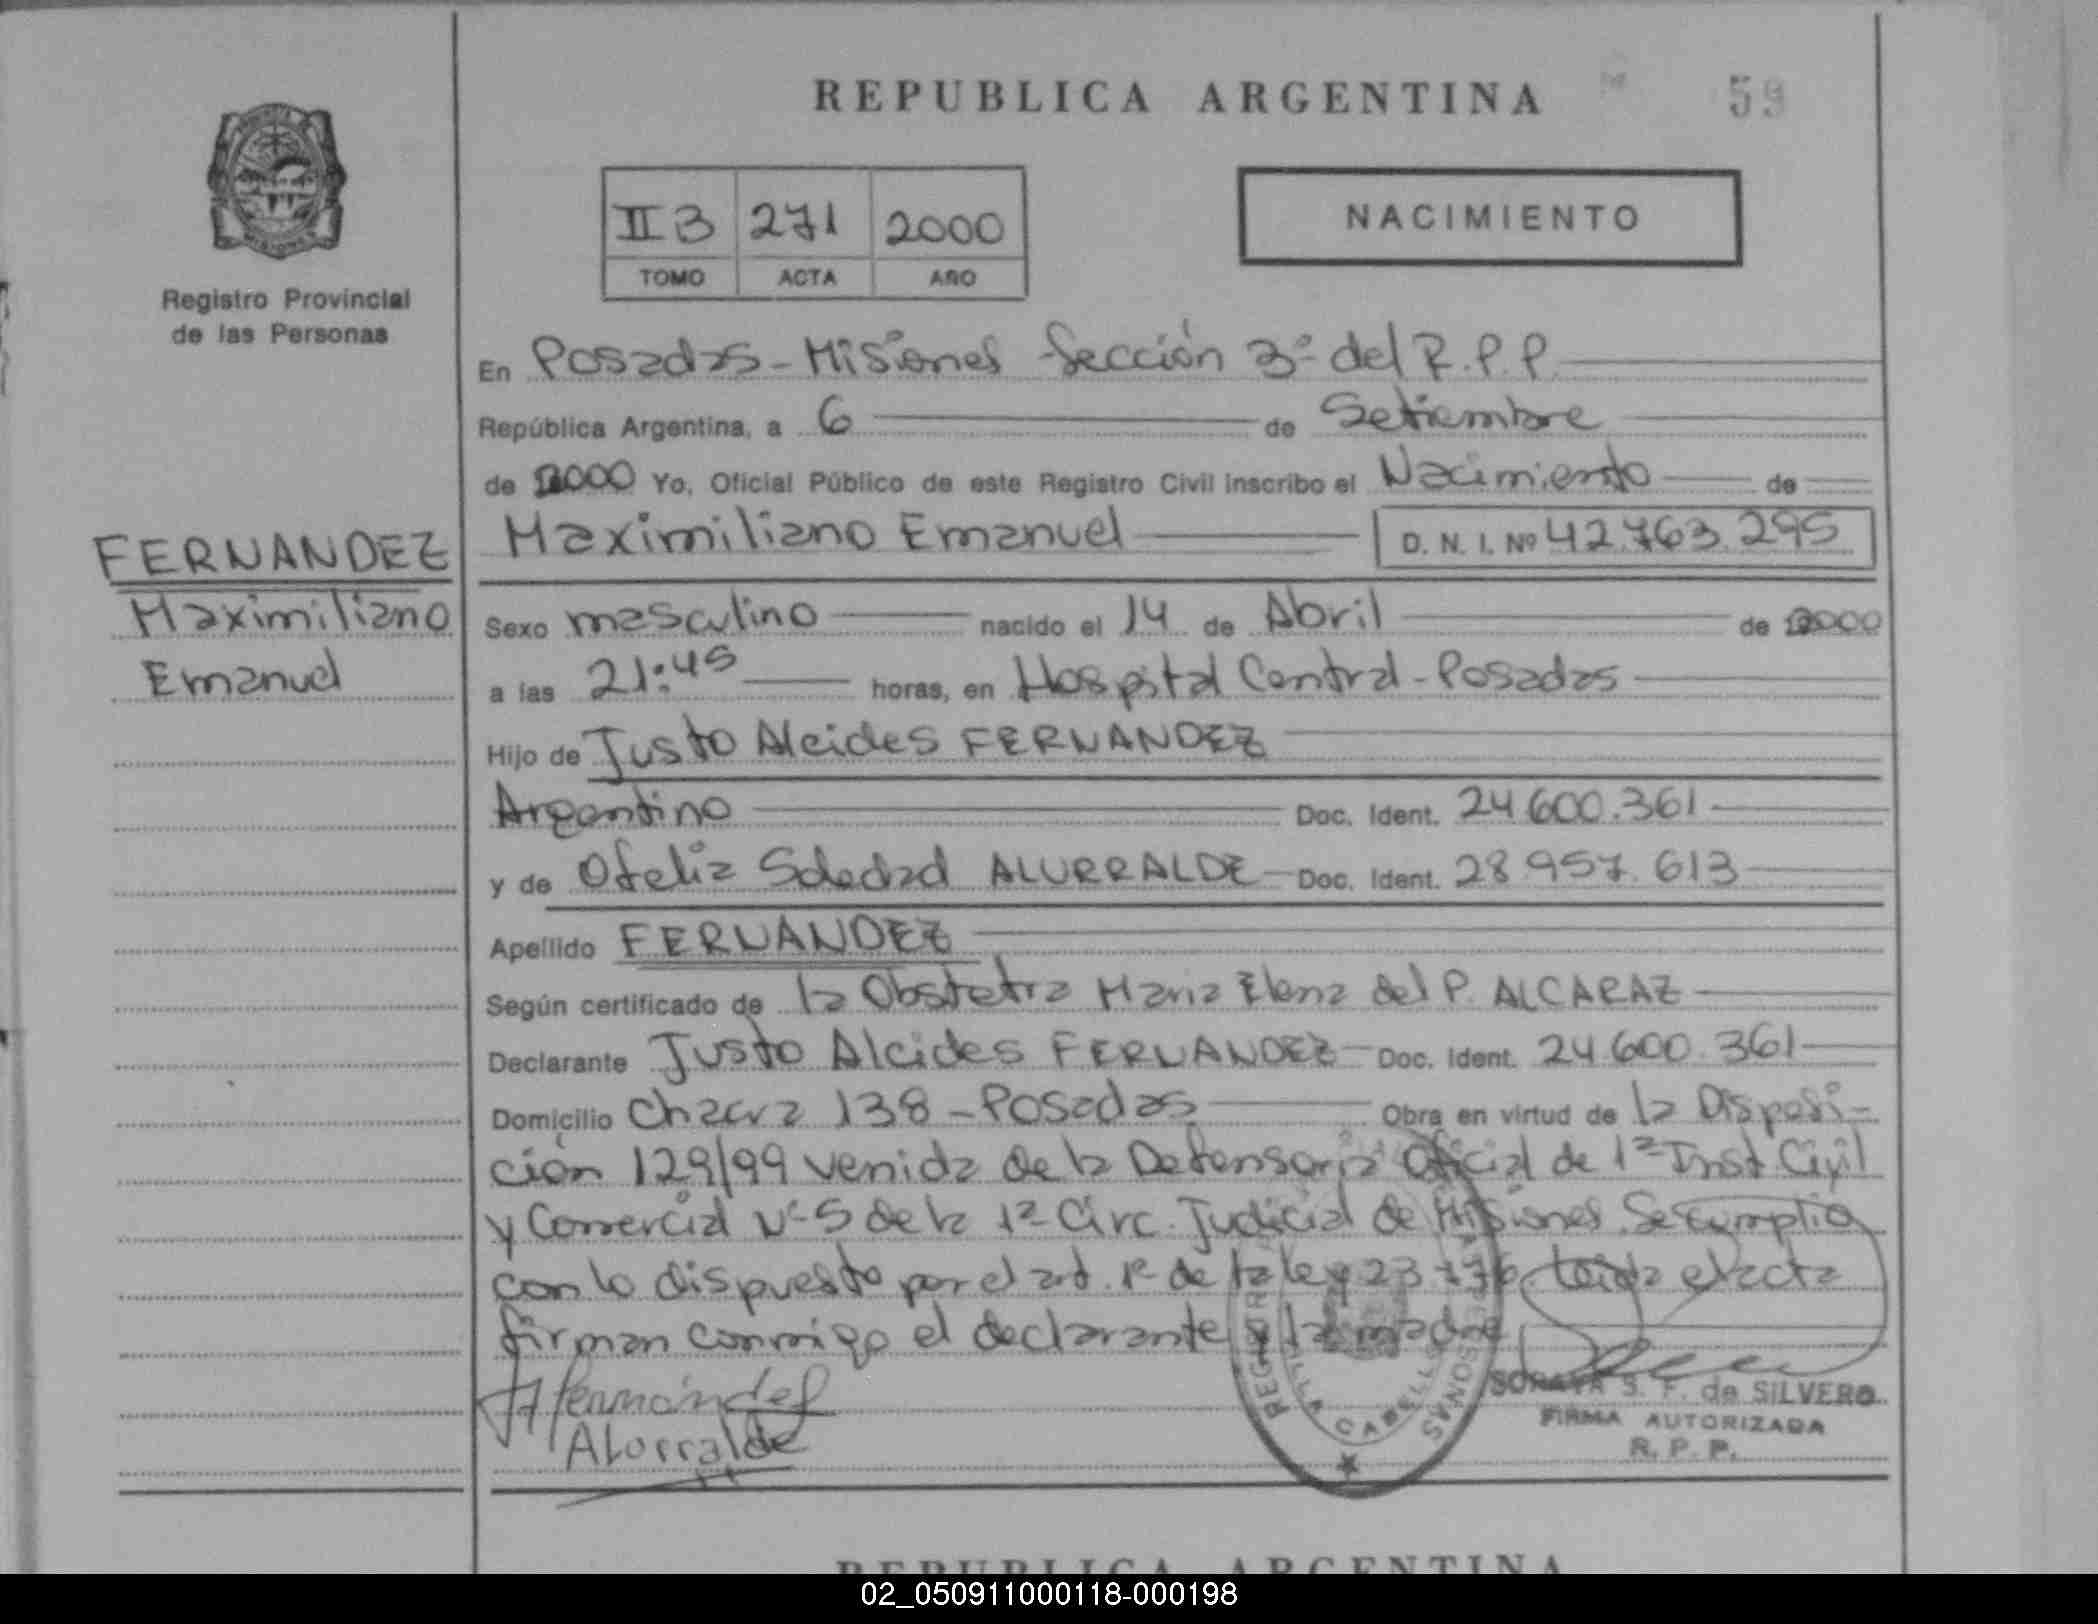 REPUBLICA ARGENTINA
59
Registro Provincial
de las Personas
II B 271 2000
TOMO ACTA AÑO
NACIMIENTO
En Posadas - Misiones - Sección 3º del R.P.P.
República Argentina, a 6 de Setiembre
de 2000 Yo, Oficial Público de este Registro Civil inscribo el Nacimiento de
Maximiliano Emanuel D. N. I. Nº 42.763.295
FERNANDEZ
Maximiliano
Emanuel
Sexo masculino nacido el 14 de Abril de 2000
a las 21:45 horas, en Hospital Central - Posadas
Hijo de Justo Alcides FERNANDEZ
Argentino Doc. Ident. 24.600.361
y de Ofelia Soledad ALURRALDE Doc. Ident. 28.957.613
Apellido FERNANDEZ
Según certificado de la Obstetra Maria Elena del P. ALCARAZ
Declarante Justo Alcides FERNANDEZ Doc. Ident. 24.600.361
Domicilio Chacra 138 - Posadas Obra en virtud de la Disposi-
ción 129/99 venida de la Defensoria Oficial de 1ª Inst. Civil
y Comercial Nº 5 de la 1ª Circ. Judicial de Misiones. Se cumplio
con lo dispuesto por el art. 1º de la ley 23.776 leida el acta
firman conmigo el declarante y la madre
Fernández
Alurralde
SORAYA S. F. de SILVERO
FIRMA AUTORIZADA
R. P. P.
REPUBLICA ARGENTINA
02_050911000118-000198